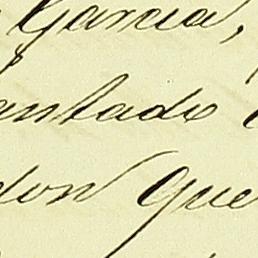 Garcia,
antado
don que